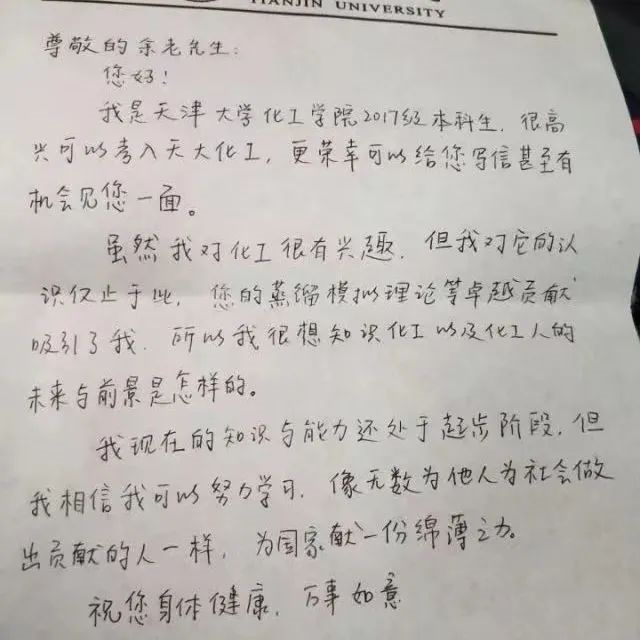 TIANJIN UNIVERSITY
尊敬的余老先生:
您好!
我是天津大学化工学院2017级本科生,很高
兴可以考入天大化工,更荣幸可以给您写信甚至有
机会见您一面。
虽然我对化工很有兴趣,但我对它的认
识仅止于此,您的蒸馏模拟理论等卓越贡献
吸引了我,所以我很想知识化工以及化工人的
未来与前景是怎样的。
我现在的知识与能力还处于起步阶段,但
我相信我可以努力学习,像无数为他人为社会做
出贡献的人一样,为国家献一份绵薄之力。
祝您身体健康,万事如意